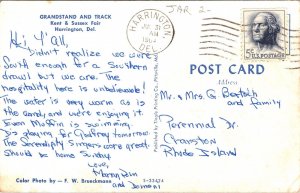 GRANDSTAND AND TRACK
Kent & Sussex Fair
Harrington, Del.
Hi Y'all,
Didn't realize we were
South enough for a Southern
drawl but we are. The
hospitality here is unbelievable!
The water is very warm as is
the sand, and we're enjoying it.
Even Muffin is swimming.
Dis playing for Godfrey tomorrow.
The Serendipity Singers were great.
Should be home Sunday.
Love,
and
Color Photo by — F. W. Brueckmann
S-53474
HARRINGTON
DEL.
JUL 31
AM
JAR 2-
5c
POST CARD
Address
Mr. + Mrs. G
and family
Perennial Dr.
Cranston
Rhode Island